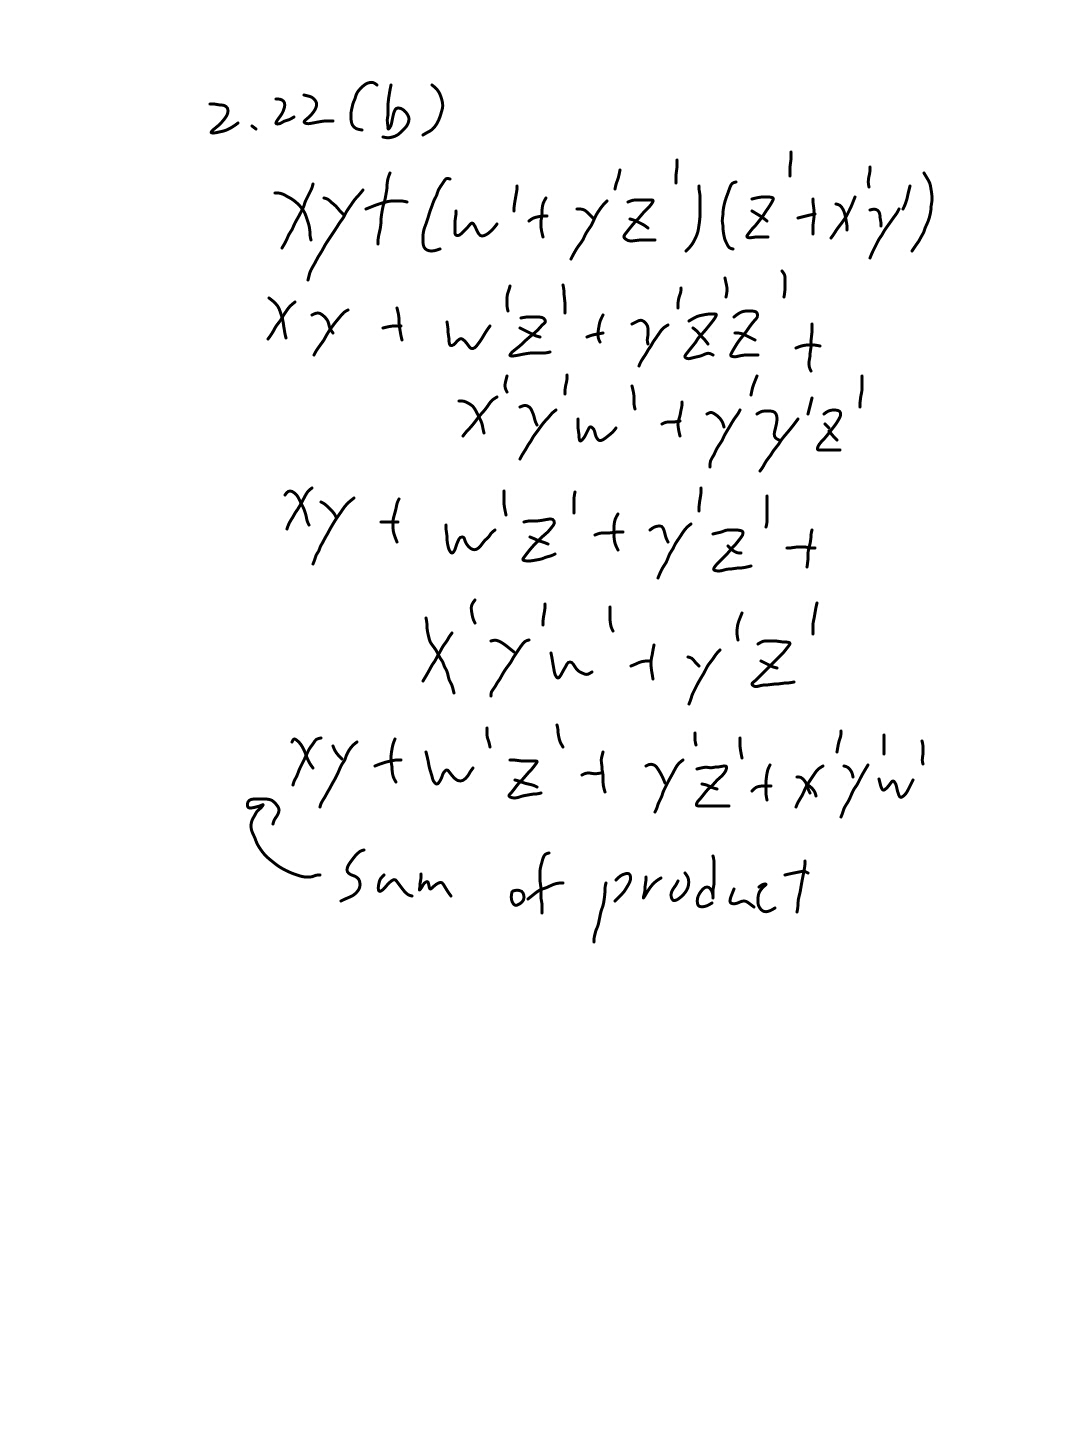 2.22(b)
xy+(w'+y'z')(z'+x'y')
xy + w'z' + y'z'z' +
x'y'w' + y'y'z'
xy + w'z' + y'z' +
x'y'w' + y'z'
xy + w'z' + y'z' + x'y'w'
sum of product